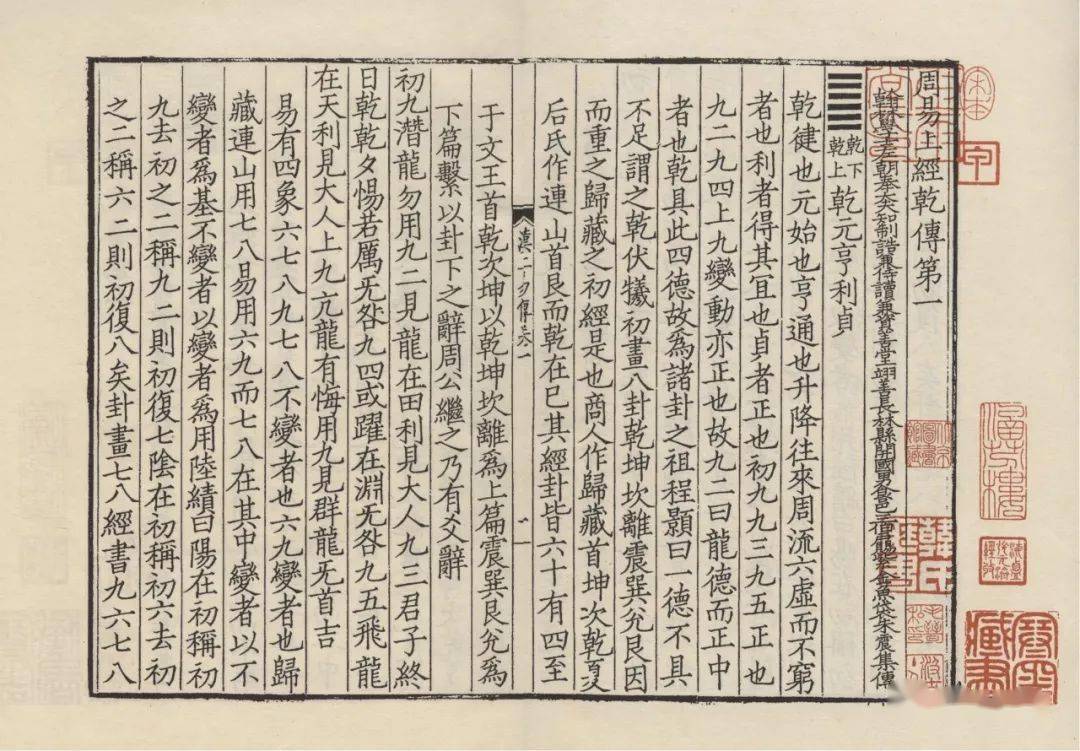 周易上經乾傳第一
翰林學士左朝奉大夫知制誥兼侍讀兼資善堂翊善長林縣開國男食邑三百戶賜紫金魚袋朱震集傳
乾下乾上乾元亨利貞
乾健也元始也亨通也升降往來周流六虛而不窮
者也利者得其冝也貞者正也初九九三九五正也
九二九四上九變動亦正也故九二曰龍德而正中
者也乾具此四德故爲諸卦之祖程顥曰一德不具
不足謂之乾伏犧初畫八卦乾坤坎離震巽兊艮因
而重之歸藏之初經是也商人作歸藏首坤次乾夏
后氏作連山首艮而乾在巳其經卦皆六十有四至
漢上易傳卷一
一
于文王首乾次坤以乾坤坎離爲上篇震巽艮兊爲
下篇繫以卦下之辭周公繼之乃有爻辭
初九潛龍勿用九二見龍在田利見大人九三君子終
日乾乾夕惕若厲无咎九四或躍在淵无咎九五飛龍
在天利見大人上九亢龍有悔用九見群龍无首吉
易有四象六七八九七八不變者也六九變者也歸
藏連山用七八易用六九而七八在其中變者以不
變者爲基不變者以變者爲用陸績曰陽在初稱初
九去初之二稱九二則初復七陰在初稱初六去初
之二稱六二則初復八矣卦畫七八經書九六七八